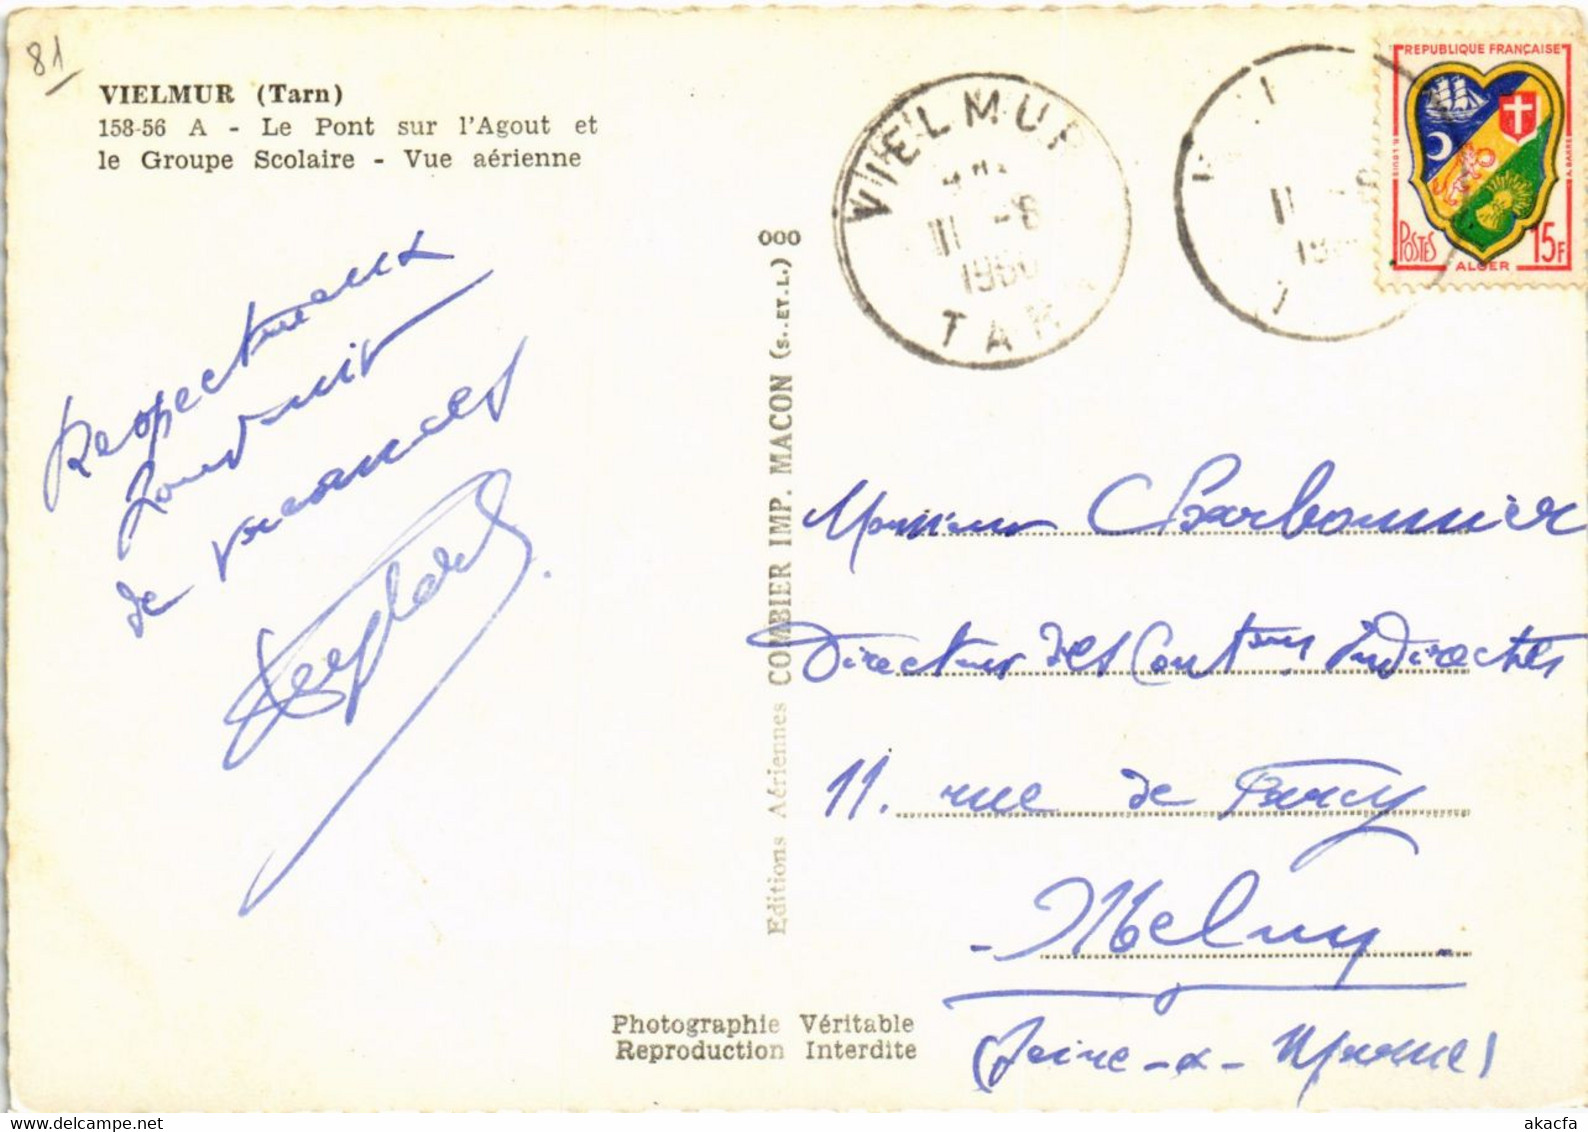 81
VIELMUR (Tarn)
158-56 A - Le Pont sur l'Agout et
le Groupe Scolaire - Vue aérienne
Respectueux
souvenir
de vacances
VIELMUR
11 -8
1960
TARN
11 -8
REPUBLIQUE FRANÇAISE
POSTES
ALGER
15F
000
Editions Aériennes COMBIER IMP. MACON (S.-ET-L.)
Monsieur Charbonnier
Directeur des Contions Indirectes
11. rue de Farcy
- Melun -
(Seine-&-Marne)
Photographie Véritable
Reproduction Interdite
www.delcampe.net
akacfa